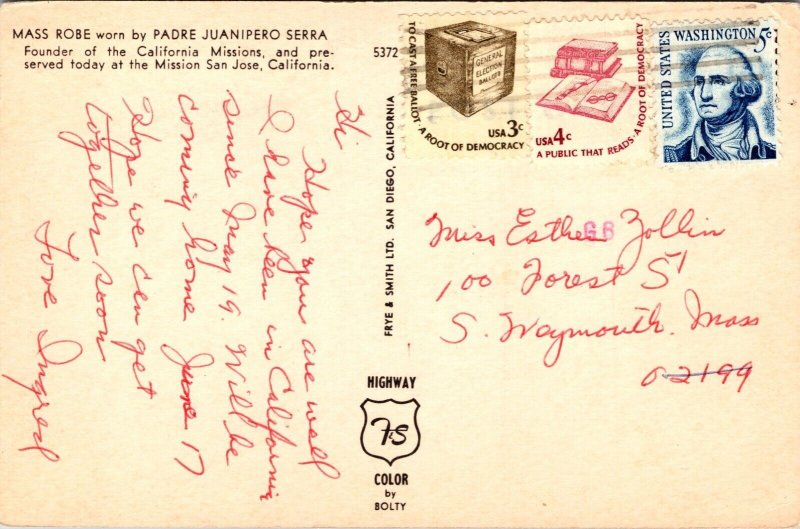 MASS ROBE worn by PADRE JUANIPERO SERRA
Founder of the California Missions, and pre-
served today at the Mission San Jose, California.
5372
TO CAST A FREE BALLOT · A ROOT OF DEMOCRACY
GENERAL
ELECTION
BALLOTS
USA 3c
USA 4c
A PUBLIC THAT READS · A ROOT OF DEMOCRACY
UNITED STATES
WASHINGTON 5c
Hi
Hope you are well
I have been in California
since May 19. Will be
coming home June 17
Hope we can get
together soon
Love Ingred
FRYE & SMITH LTD. SAN DIEGO, CALIFORNIA
Miss Esther Zollin
GB
100 Forest St
S. Weymouth. Mass
02199
HIGHWAY
FS
COLOR
by
BOLTY